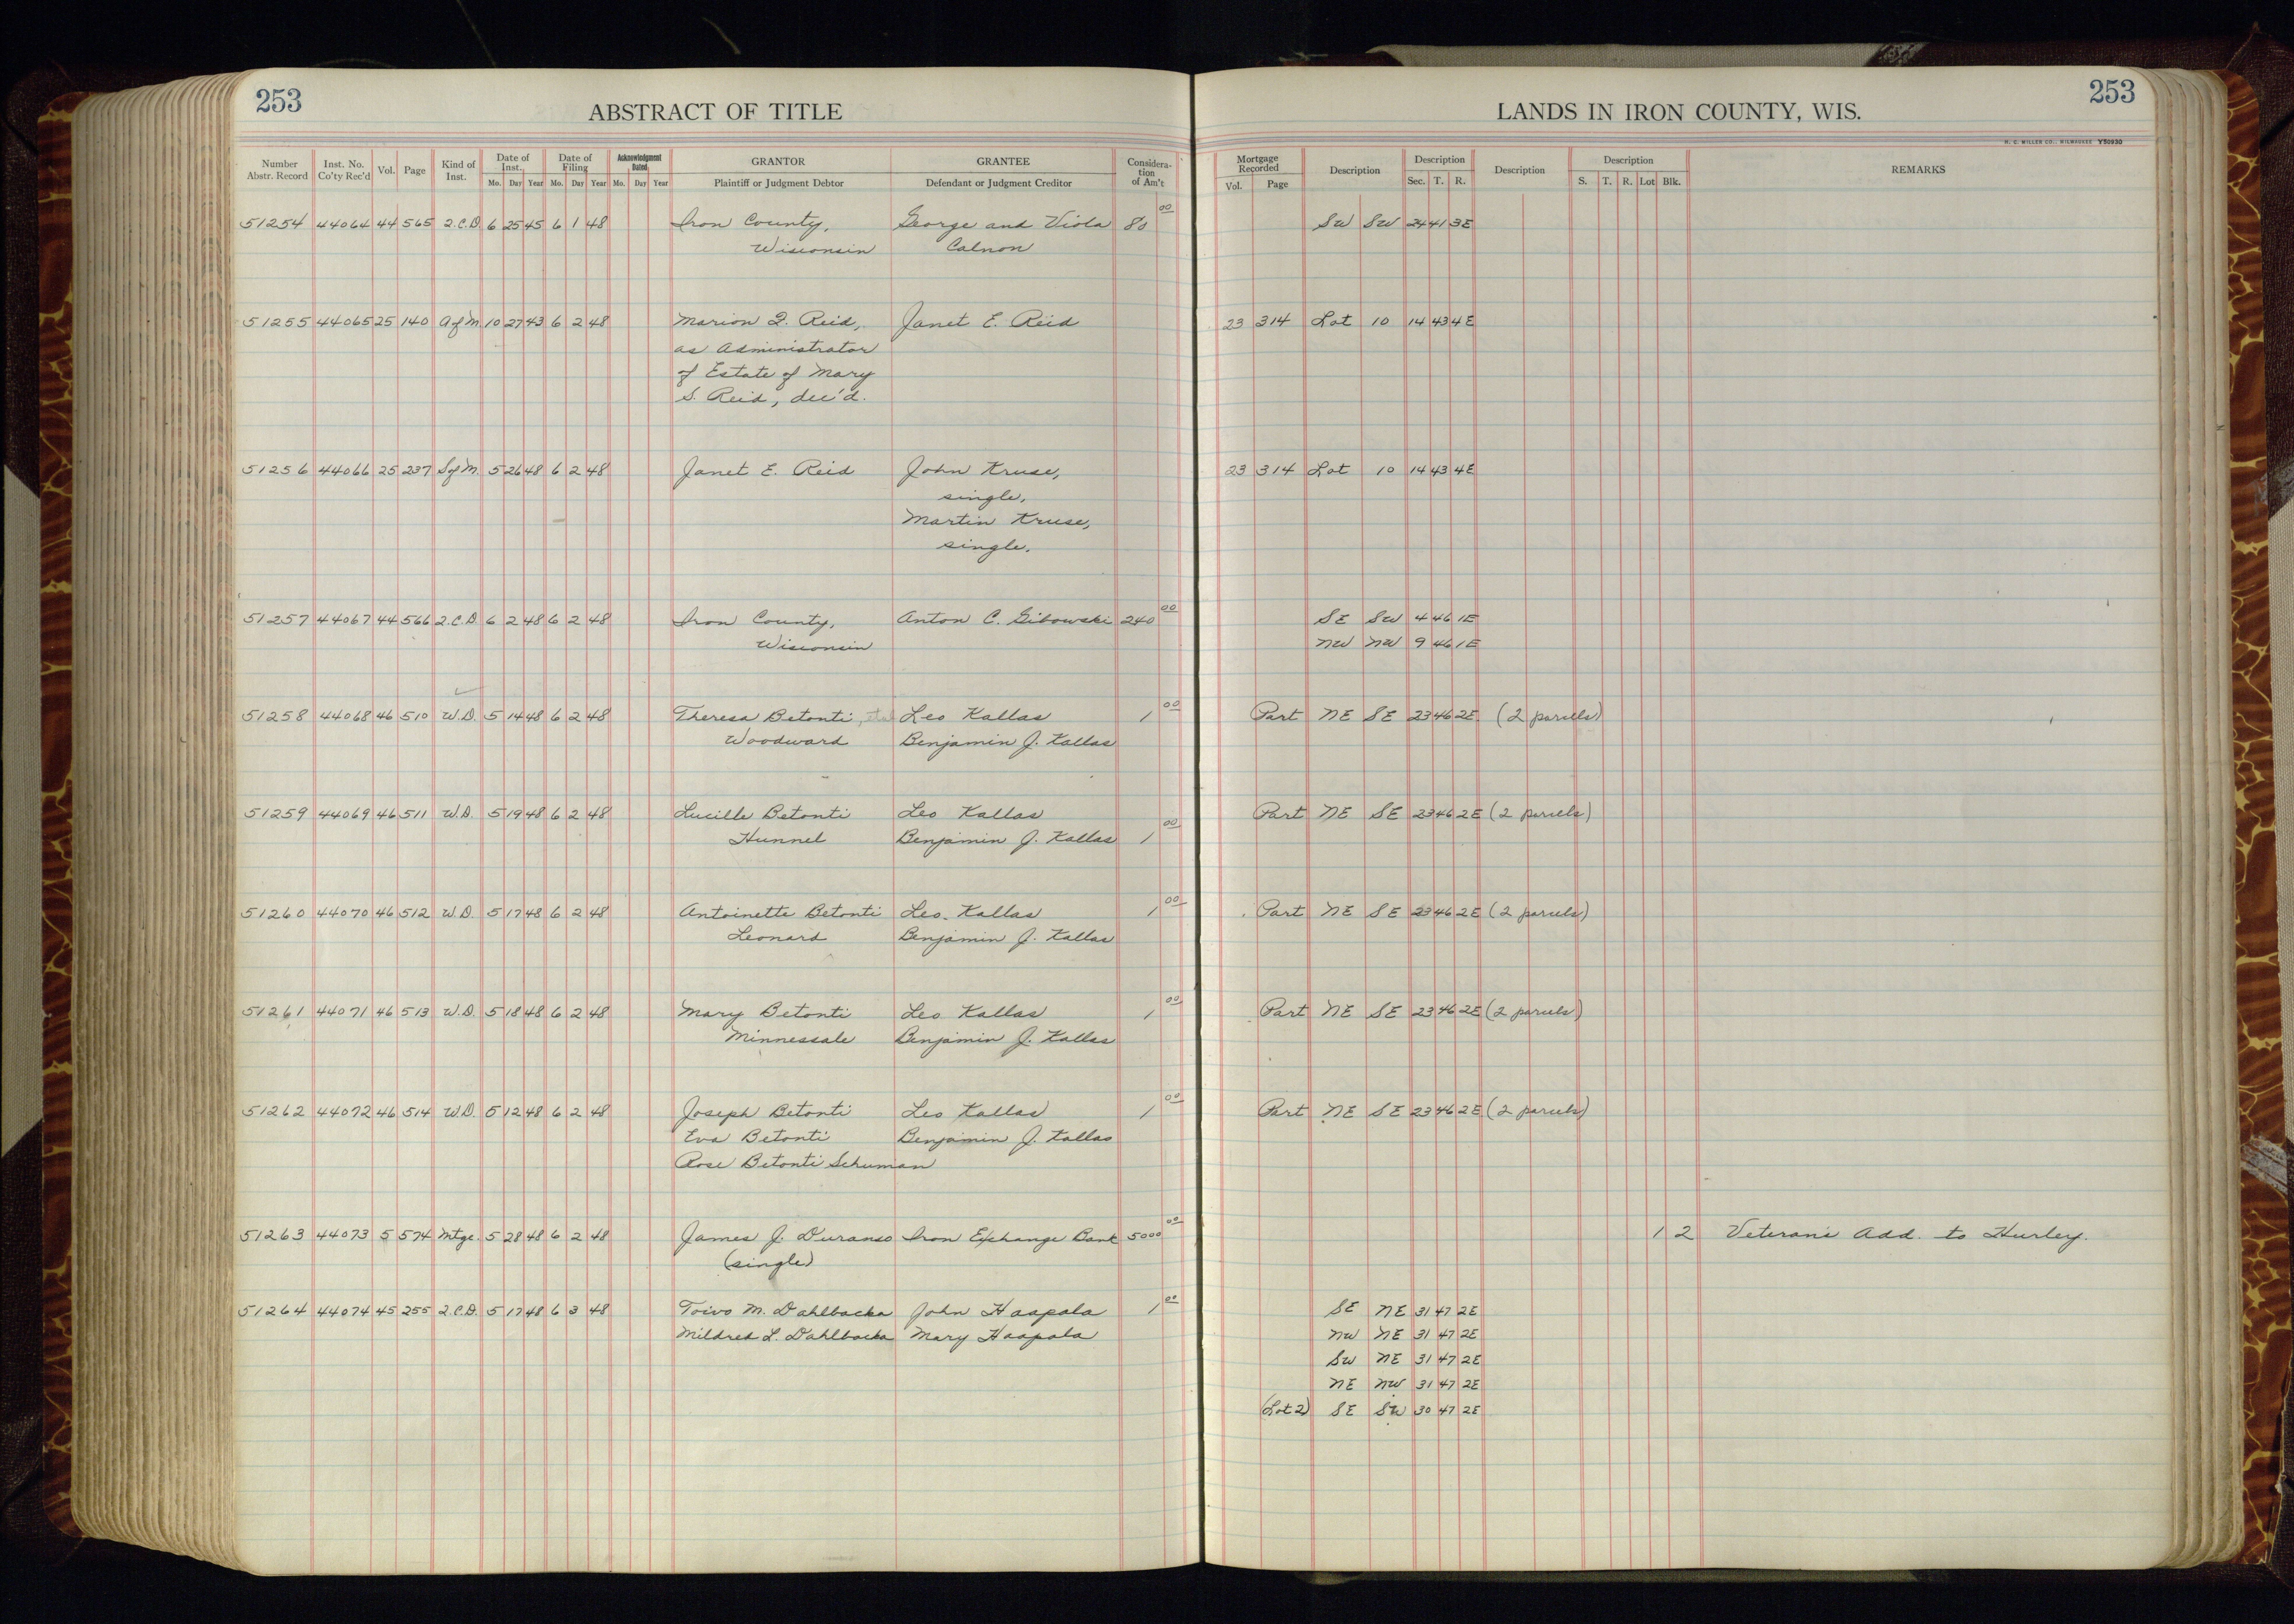 253 ABSTRACT OF TITLE LANDS IN IRON COUNTY, WIS. 253
H. C. MILLER CO., MILWAUKEE Y50930
Number Abstr. Record Inst. No. Co'ty Rec'd Vol. Page Kind of Inst. Date of Inst. Mo. Day Year Date of Filing Mo. Day Year Acknowledgment Dated Mo. Day Year GRANTOR Plaintiff or Judgment Debtor GRANTEE Defendant or Judgment Creditor Considera-tion of Am't Mortgage Recorded Vol. Page Description Description Sec. T. R. Description Description S. T. R. Lot Blk. REMARKS
51254 44064 44 565 2.C.D. 6 25 45 6 1 48 Iron County, George and Viola 80 00 SW SW 24 41 3E
Wisconsin Calnon
51255 44065 25 140 A of M. 10 27 43 6 2 48 Marion Q. Reid, Janet E. Reid 23 314 Lot 10 14 43 4E
as Administrator
of Estate of Mary
S. Reid, dec'd.
51256 44066 25 237 S of M. 5 26 48 6 2 48 Janet E. Reid John Kruse, 23 314 Lot 10 14 43 4E
single,
Martin Kruse,
single.
51257 44067 44 566 2.C.D. 6 2 48 6 2 48 Iron County, Anton C. Gibowski 240 00 SE SW 4 46 1E
Wisconsin NW NW 9 46 1E
51258 44068 46 510 W.D. 5 14 48 6 2 48 Theresa Betonti, etal Leo Kallas 1 00 Part NE SE 23 46 2E (2 parcels)
Woodward Benjamin J. Kallas
51259 44069 46 511 W.D. 5 19 48 6 2 48 Lucille Betonti Leo Kallas Part NE SE 23 46 2E (2 parcels)
Hunnel Benjamin J. Kallas 1 00
51260 44070 46 512 W.D. 5 17 48 6 2 48 Antoinette Betonti Leo Kallas 1 00 Part NE SE 23 46 2E (2 parcels)
Leonard Benjamin J. Kallas
51261 44071 46 513 W.D. 5 18 48 6 2 48 Mary Betonti Leo Kallas 1 00 Part NE SE 23 46 2E (2 parcels)
Minnessale Benjamin J. Kallas
51262 44072 46 514 W.D. 5 12 48 6 2 48 Joseph Betonti Leo Kallas 1 00 Part NE SE 23 46 2E (2 parcels)
Eva Betonti Benjamin J. Kallas
Rose Betonti Schuman
51263 44073 5 574 Mtge. 5 28 48 6 2 48 James J. Duranso Iron Exchange Bank 5000 00 1 2 Veteran's Add. to Hurley.
(single)
51264 44074 45 255 2.C.D. 5 17 48 6 3 48 Toivo M. Dahlbacka John Haapala 1 00 SE NE 31 47 2E
Mildred L. Dahlbacka Mary Haapala NW NE 31 47 2E
SW NE 31 47 2E
NE NW 31 47 2E
(Lot 2) SE SW 30 47 2E